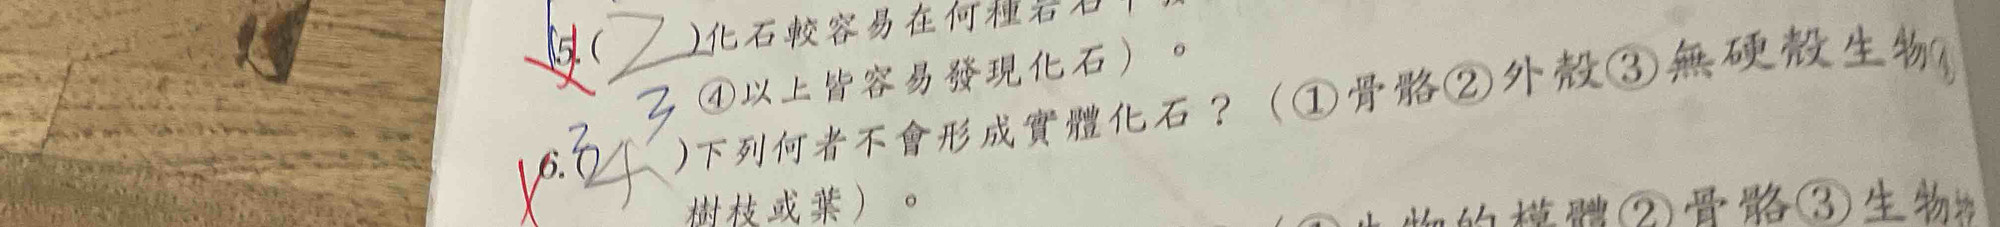 5.(2)化石較容易在何種岩石
④以上皆容易發現化石)。
3
6.(4)下列何者不會形成實體化石？(①骨骼②外殼③無硬殼生物④
3
樹枝或葉)。
生物的模體②骨骼③生物